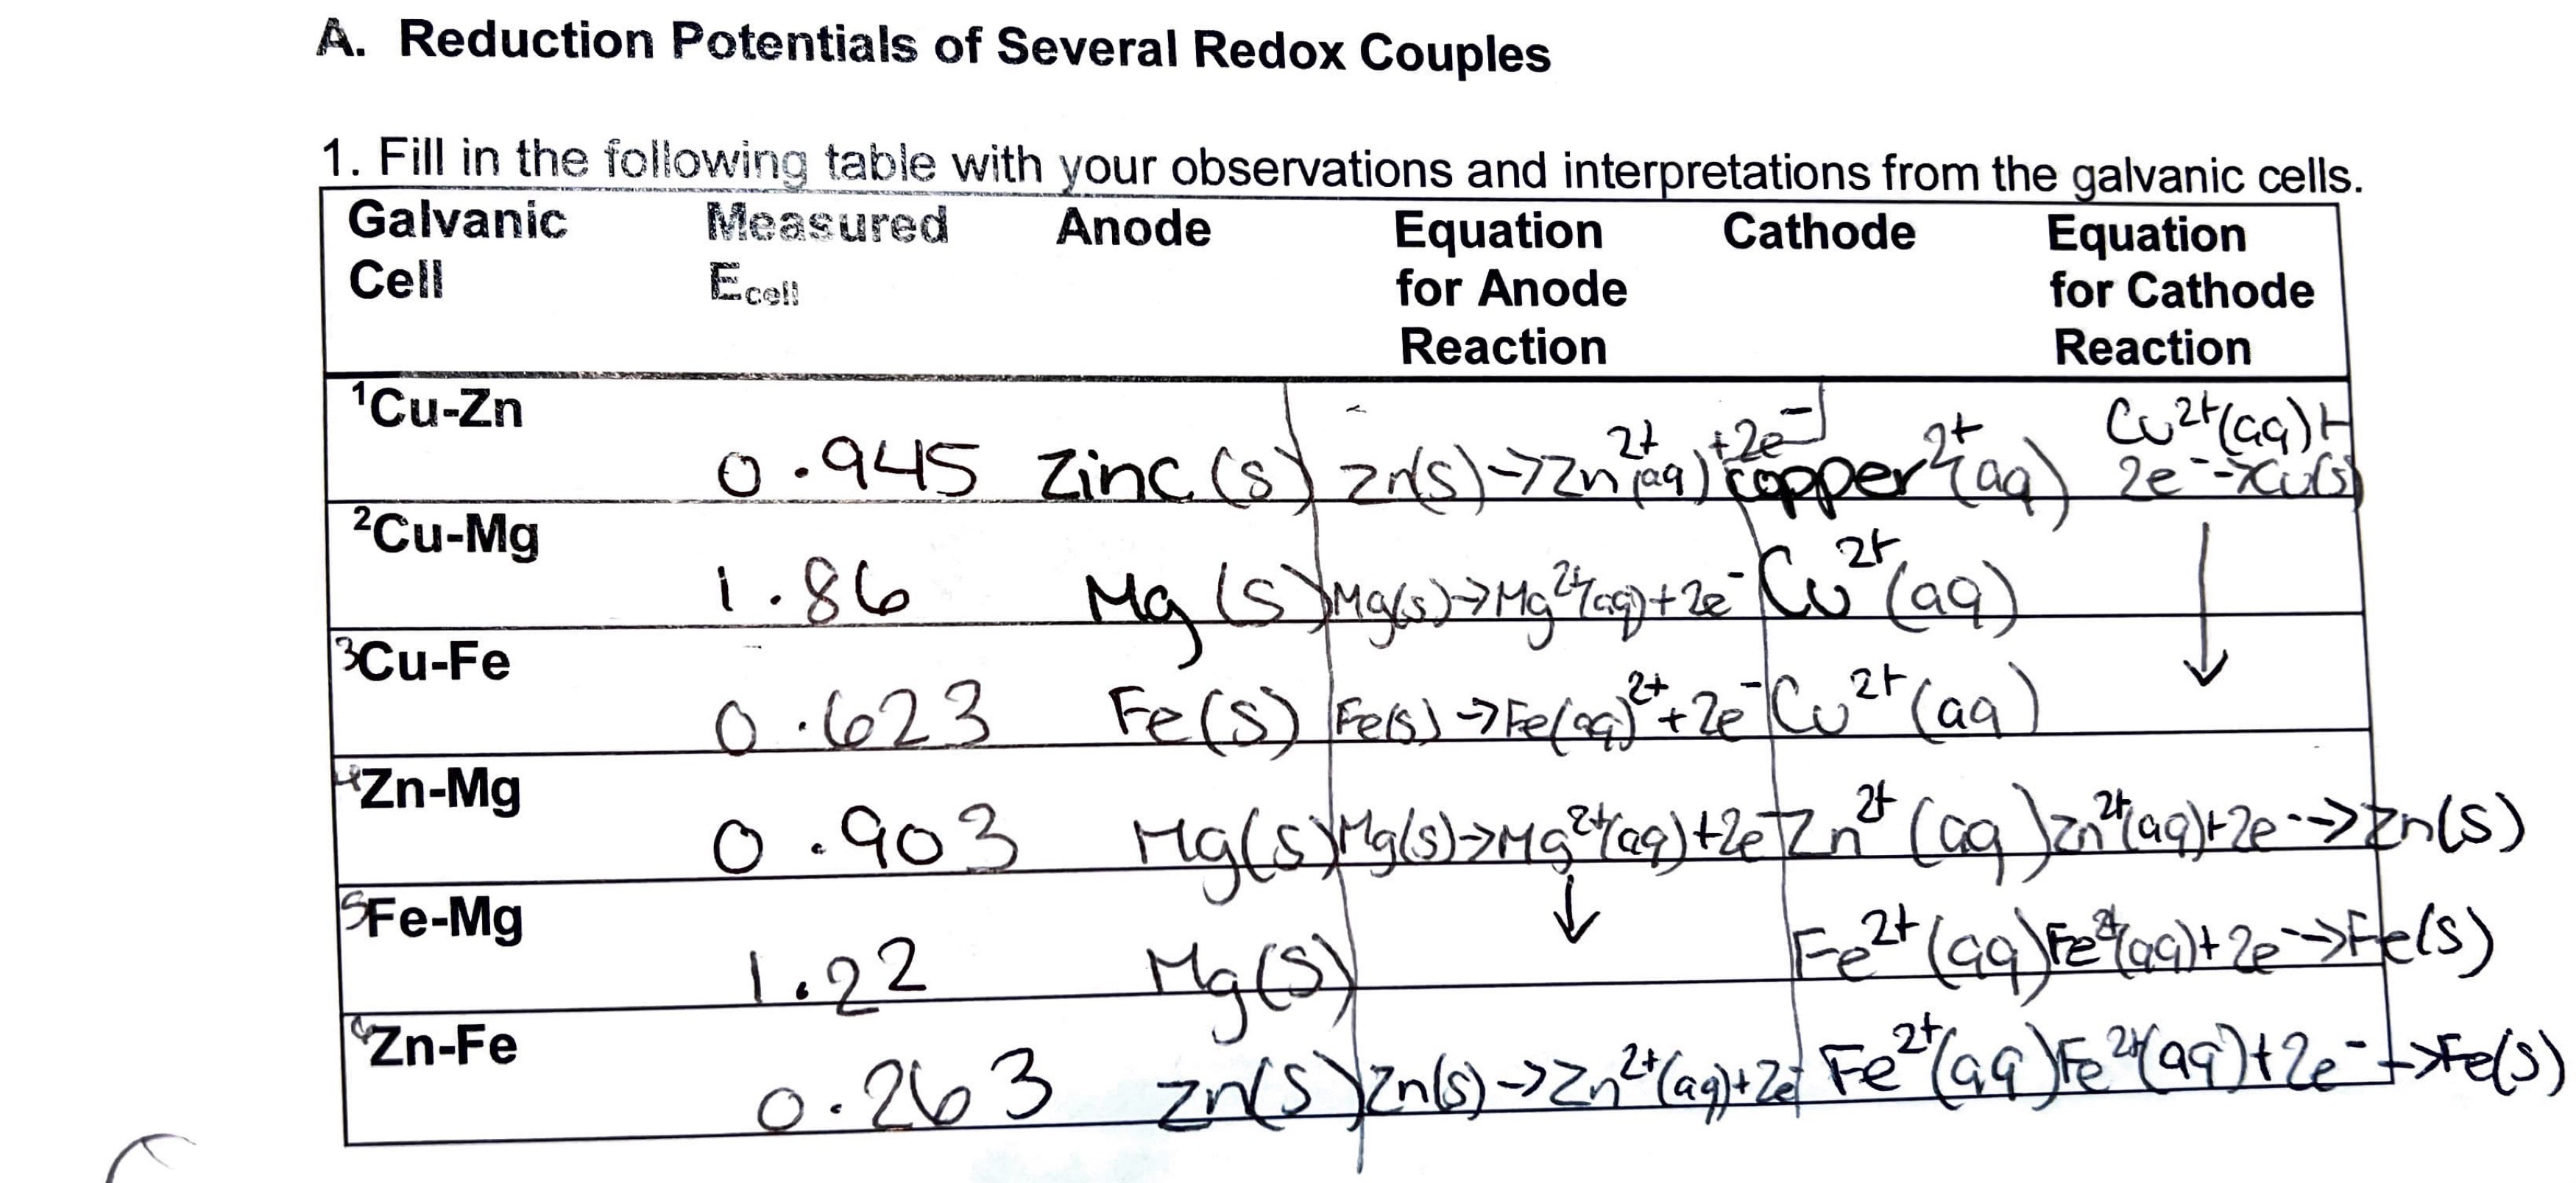 A. Reduction Potentials of Several Redox Couples
1. Fill in the following table with your observations and interpretations from the galvanic cells.
Galvanic Cell Measured Ecell Anode Equation for Anode Reaction Cathode Equation for Cathode Reaction
¹Cu-Zn 0.945 Zinc (s) Zn(s)→Zn²⁺(aq) +2e⁻ copper²⁺(aq) Cu²⁺(aq)+ 2e⁻→Cu(s)
²Cu-Mg 1.86 Mg (s) Mg(s)→Mg²⁺(aq)+2e⁻ Cu²⁺(aq) ↓
³Cu-Fe 0.623 Fe(s) Fe(s)→Fe(aq)²⁺+2e⁻ Cu²⁺(aq)
⁴Zn-Mg 0.903 Mg(s) Mg(s)→Mg²⁺(aq)+2e⁻ Zn²⁺(aq) Zn²⁺(aq)+2e⁻→Zn(s)
⁵Fe-Mg 1.22 Mg(s) ↓ Fe²⁺(aq) Fe²⁺(aq)+2e⁻→Fe(s)
⁶Zn-Fe 0.263 Zn(s) Zn(s)→Zn²⁺(aq)+2e⁻ Fe²⁺(aq) Fe²⁺(aq)+2e⁻→Fe(s)